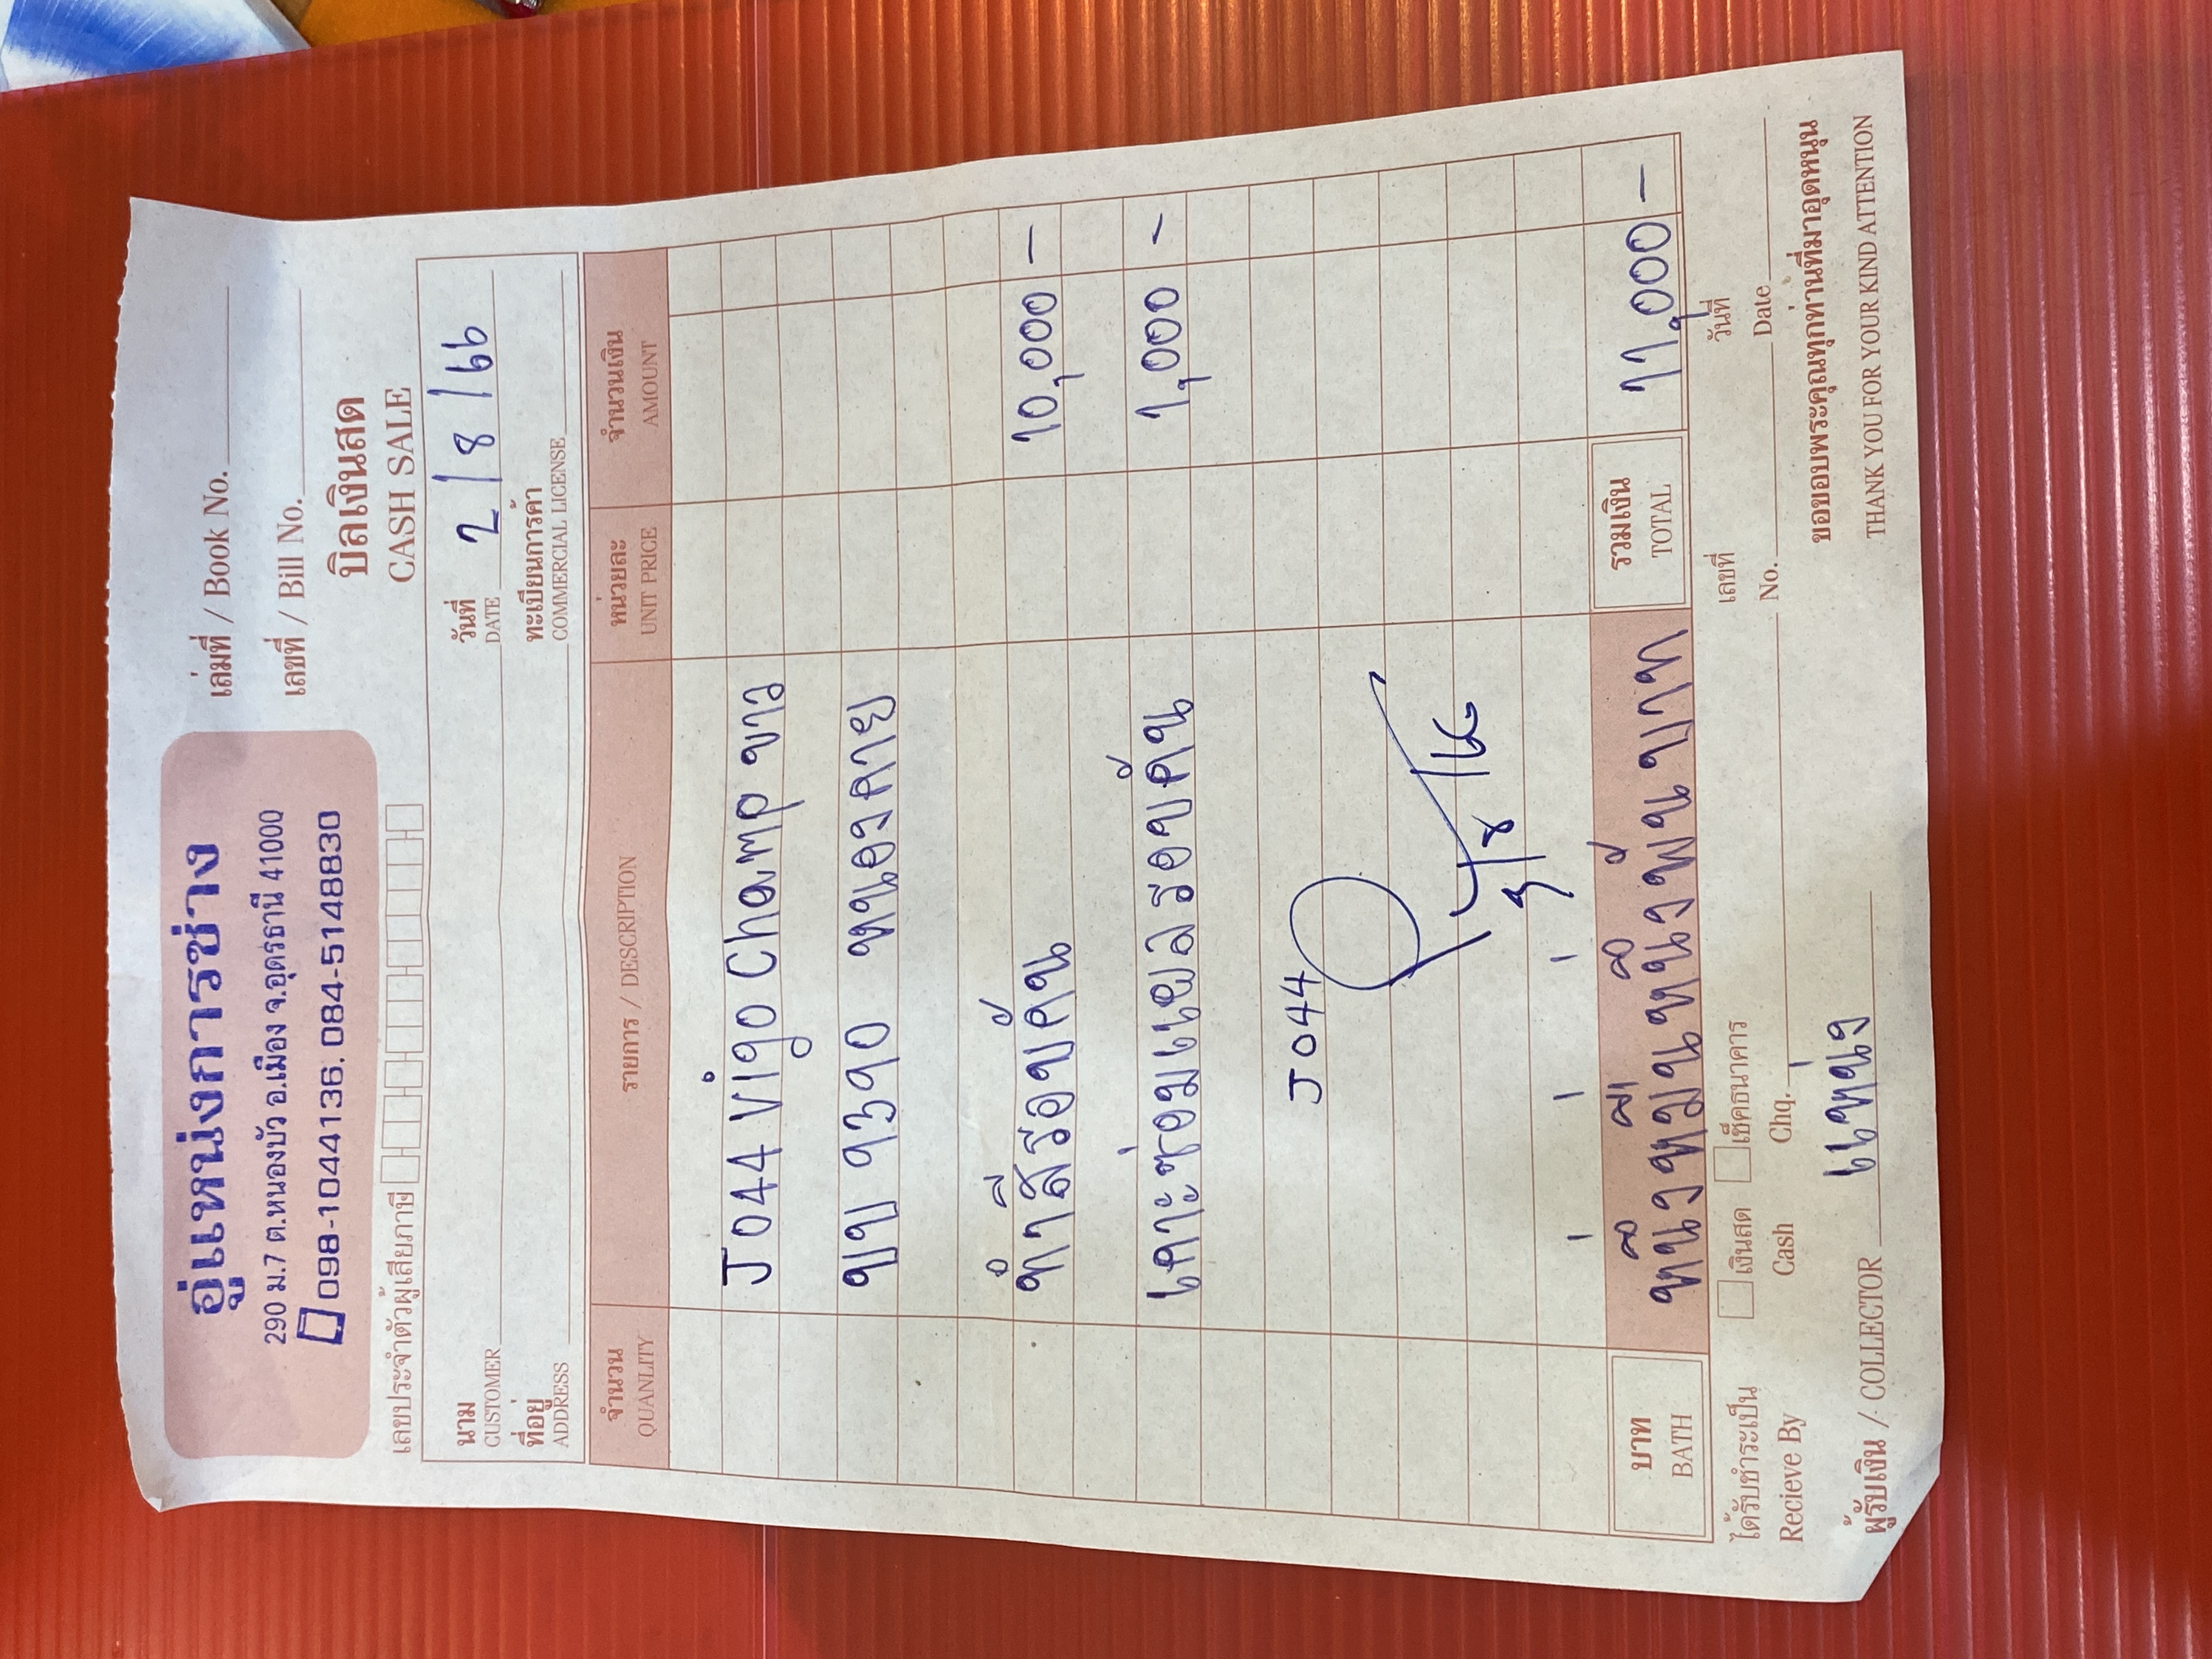 อู่แหน่งการช่าง
290 ม.7 ต.หนองบัว อ.เมือง จ.อุดรธานี 41000
098-1044136. 084-5148830
เล่มที่ / Book No.
เลขที่ / Bill No.
บิลเงินสด
CASH SALE
เลขประจำตัวผู้เสียภาษี
นาม
CUSTOMER
วันที่
DATE 2/8/66
ที่อยู่
ADDRESS
ทะเบียนการค้า
COMMERCIAL LICENSE
จำนวน รายการ / DESCRIPTION หน่วยละ จำนวนเงิน
QUANLITY UNIT PRICE AMOUNT
J044 Vigo Champ ขาว
ขบ 9390 หนองคาย
ทำสีรอบคัน 10,000 -
เคาะซ่อมแผลรอบคัน 1,000 -
J044
3/8/66
บาท หนึ่งหมื่นหนึ่งพันบาท รวมเงิน 11,000 -
BATH TOTAL
ได้รับชำระเป็น เงินสด เช็คธนาคาร เลขที่ วันที่
Recieve By Cash Chq. No. Date
ผู้รับเงิน / COLLECTOR แหน่ง
ขอขอบพระคุณทุกท่านที่มาอุดหนุน
THANK YOU FOR YOUR KIND ATTENTION